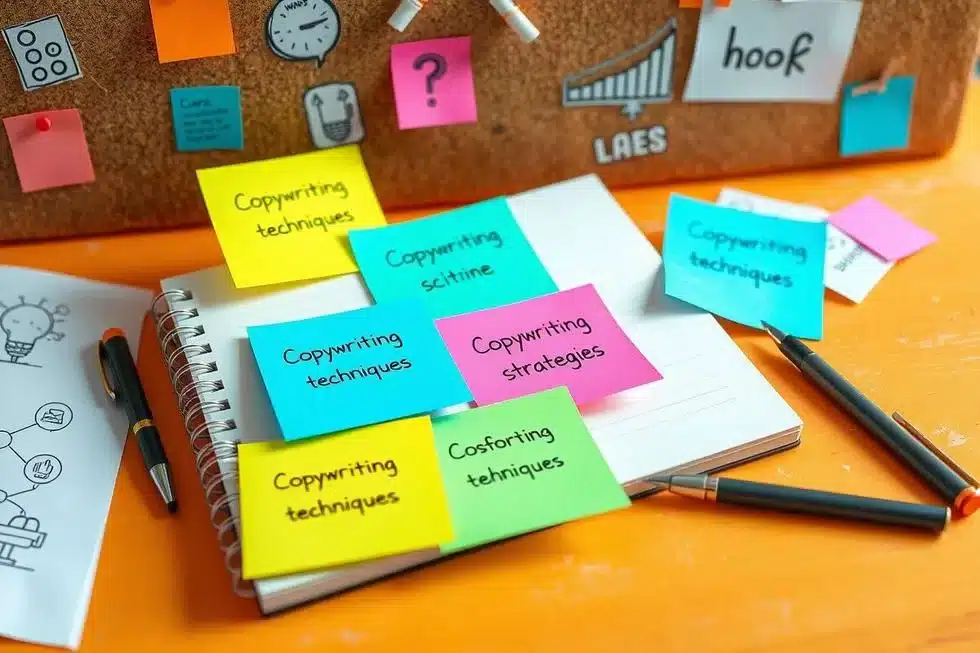 ?
hook
LAES
Copywriting
techniques
Copywriting
scitrine
Copywriting
techniques
Copywriting
techniques
Copywriting
strategies
Copywriting
techniques
Cosforting
tehniques